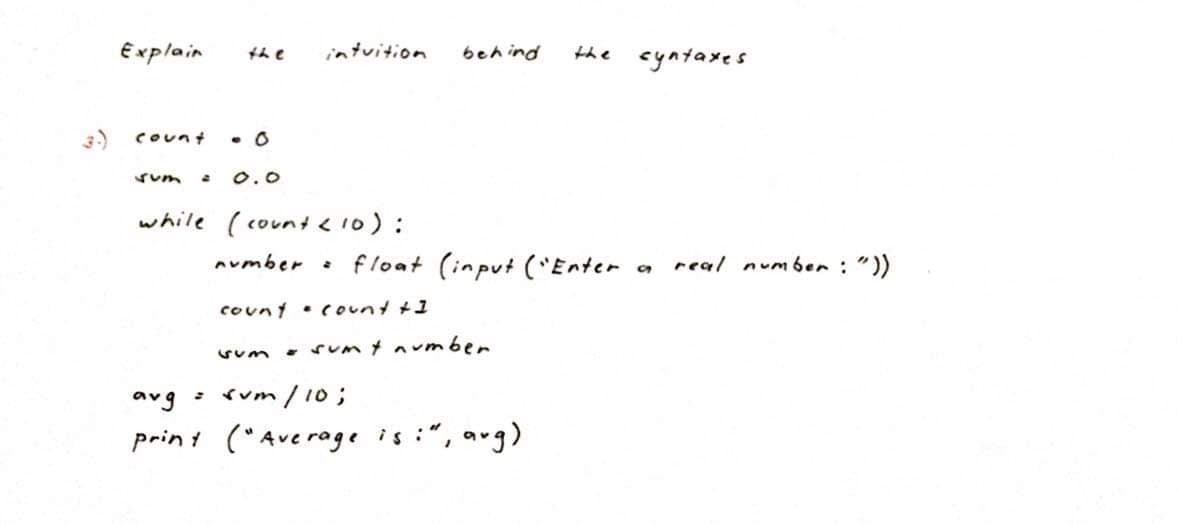 Explain the intuition behind the syntaxes
3.) count = 0
sum = 0.0
while (count < 10) :
number = float (input ("Enter a real number : "))
count = count + 1
sum = sum + number
avg = sum / 10 ;
print ("Average is : ", avg)